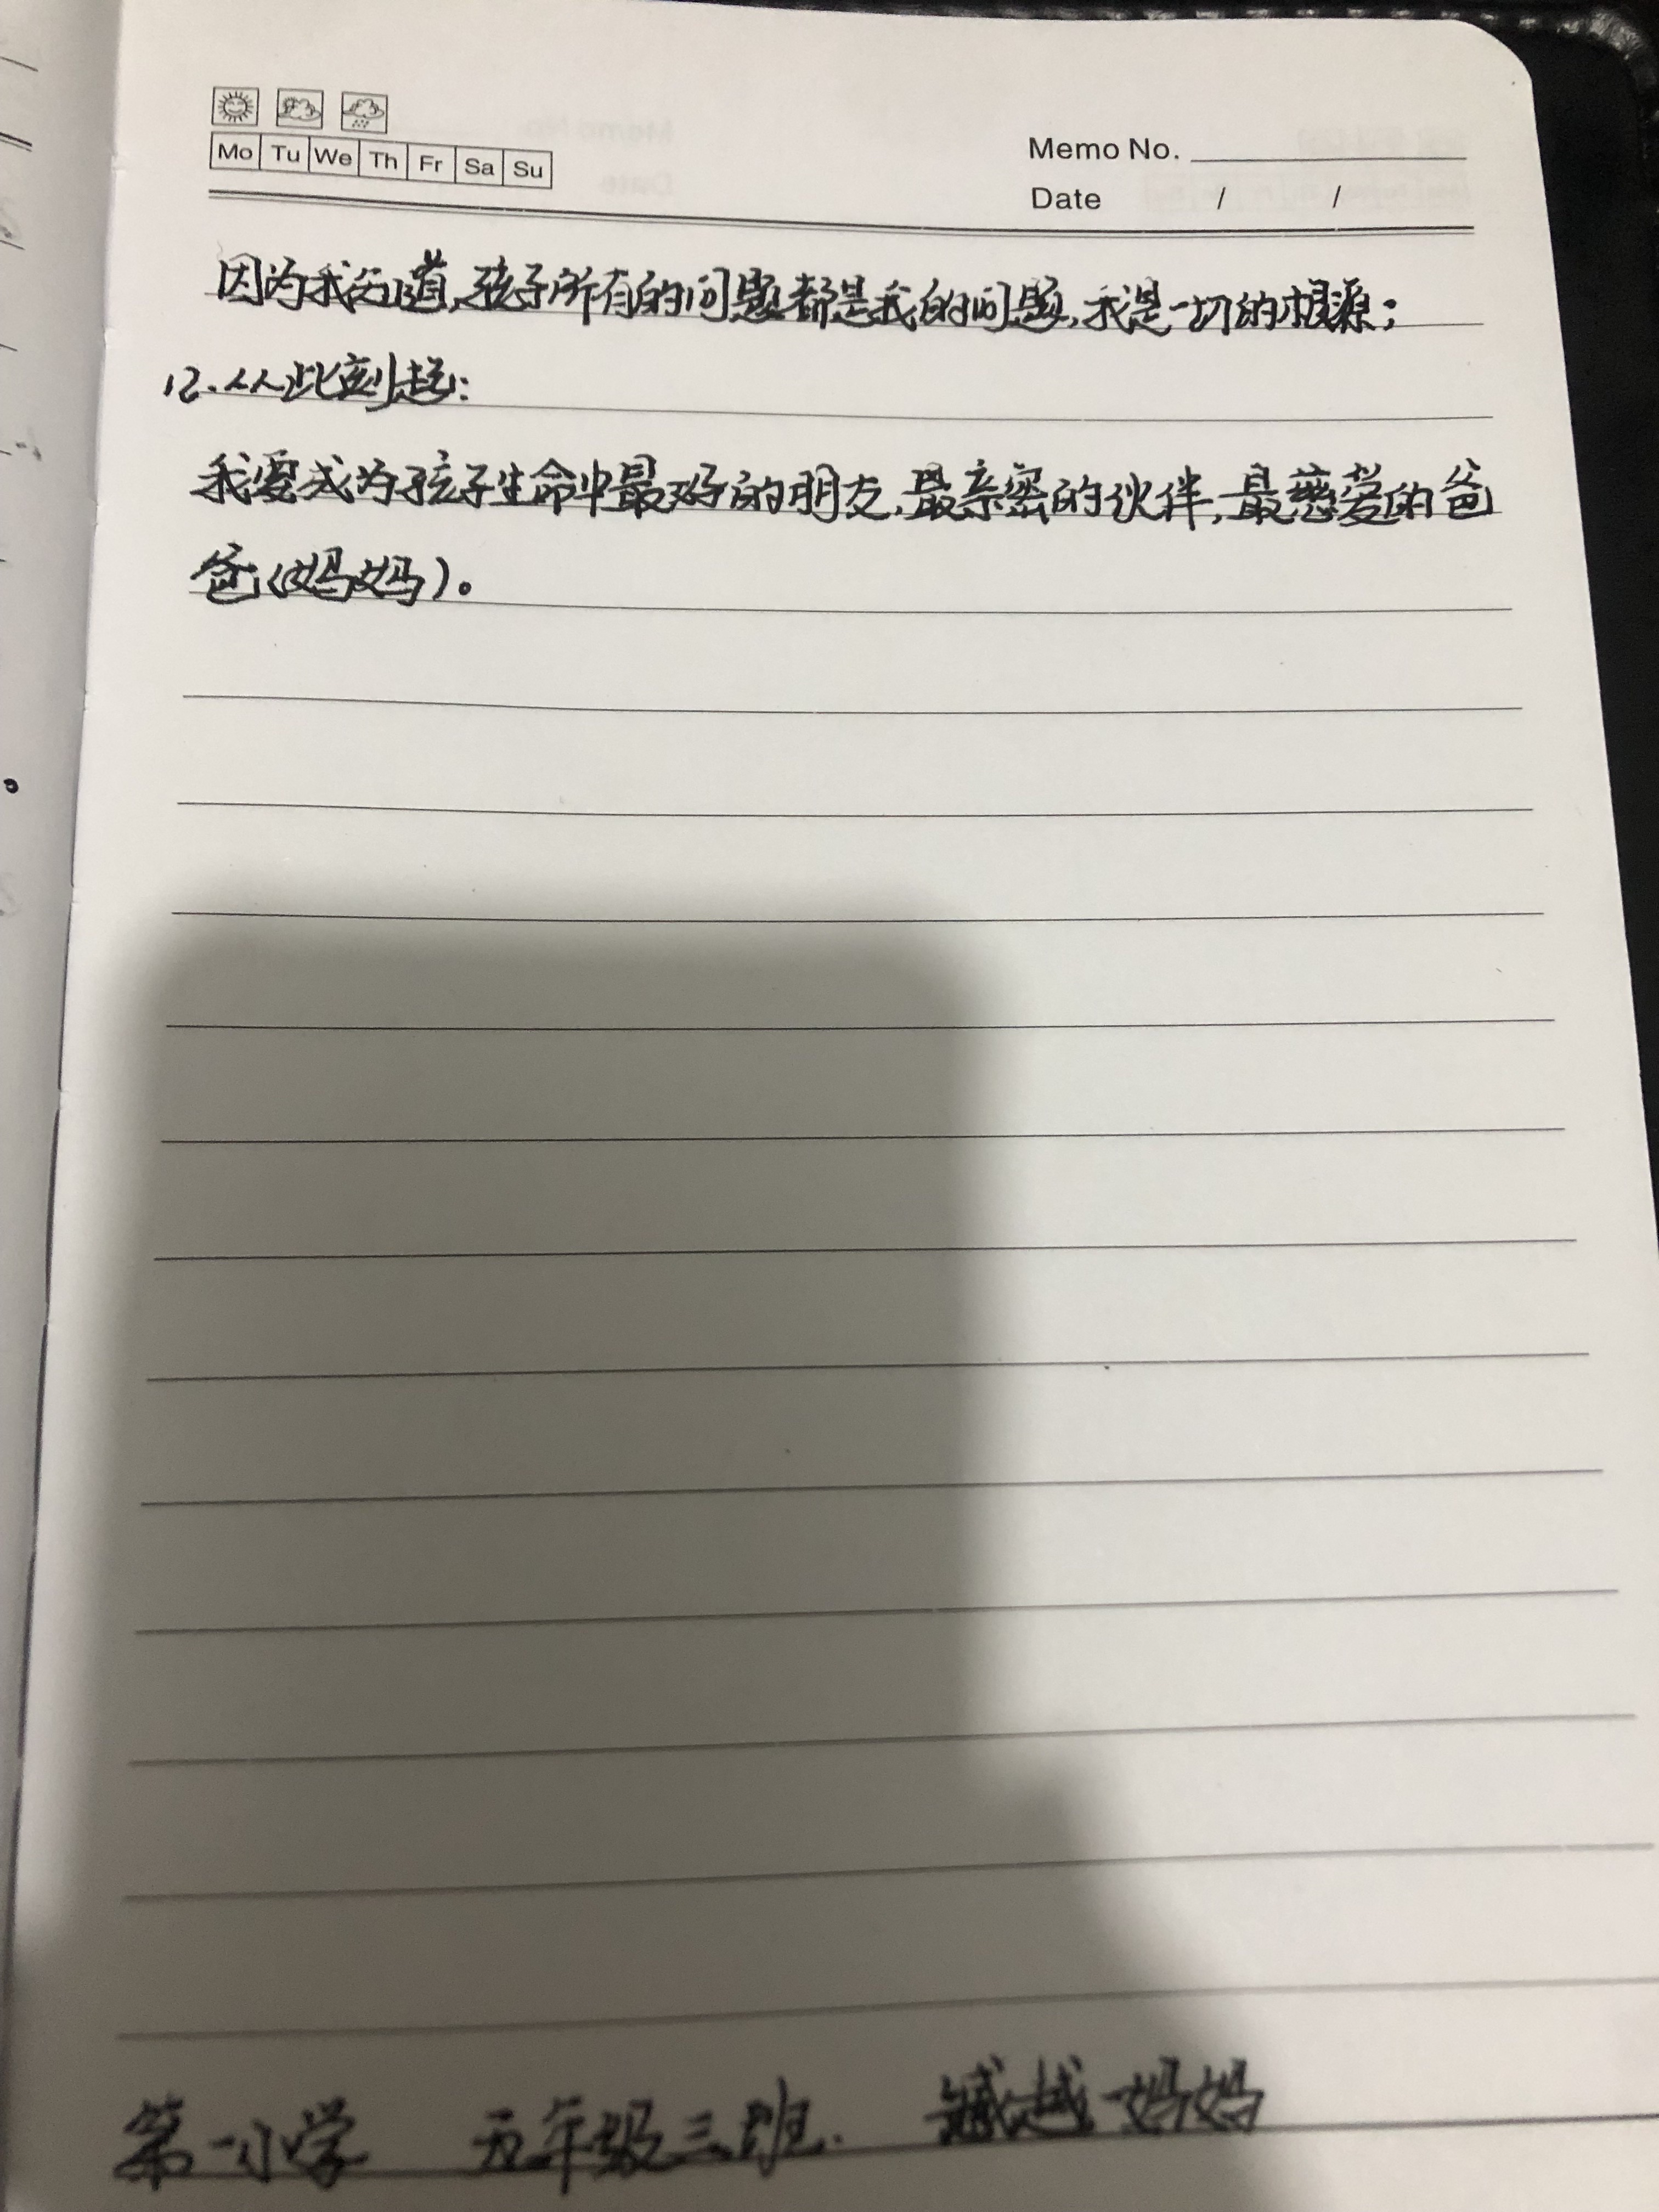 Mo Tu We Th Fr Sa Su
Memo No.
Date / /
因为我知道,孩子所有的问题都是我的问题,我是一切的根源;
12.从此刻起:
我要成为孩子生命中最好的朋友,最亲密的伙伴,最慈爱的爸
爸(妈妈)。
第一小学 五年级三班. 越妈妈